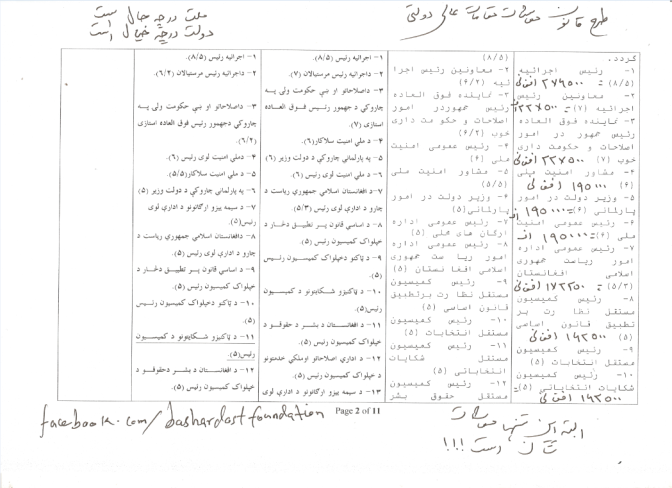 طرح قانون معاشات مقامات عالی دولتی
ملت در چه حال است
دولت در چه خیال است
گردد.
۱- رئیس اجرائیه
(۸/۵) = ۲۷۹۵۰۰ افغانی
۲- معاونین رئیس
اجرائیه (۷) = ۲۲۷۵۰۰
۳- نماینده فوق العاده
رئیس جمهور در امور
اصلاحات و حکومت داری
خوب (۷) = ۲۲۷۵۰۰ افغانی
۴- مشاور امنیت ملی
(۶) ۱۹۵۰۰۰ افغانی
۵- وزیر دولت در امور
پارلمانی (۶) = ۱۹۵۰۰۰
۶- رئیس عمومی امنیت
ملی (۶) = ۱۹۵۰۰۰
۷- رئیس عمومی اداره
امور ریاست جمهوری
اسلامی افغانستان
(۵/۳) = ۱۷۲۲۵۰ افغانی
۸- رئیس کمیسیون
مستقل نظارت بر
تطبیق قانون اساسی
(۵) ۱۶۲۵۰۰ افغانی
۹- رئیس کمیسیون
مستقل انتخابات (۵)
۱۰- رئیس کمیسیون
شکایات انتخاباتی (۵) =
۱۶۲۵۰۰ افغانی
(۸/۵)
۲- معاونین رئیس اجرا
ئیه (۶/۲)
۳- نماینده فوق العاده
رئیس جمهوردر امور
اصلاحات و حکومت داری
خوب (۶/۲)
۴- رئیس عمومی امنیت
ملی (۶)
۵- مشاور امنیت ملی
(۵/۵)
۶- وزیر دولت در امور
پارلمانی (۵)
۷- رئیس عمومی اداره
ارگان های محلی (۵)
۸- رئیس عمومی اداره
امور ریا ست جمهوری
اسلامی افغا نستان (۵)
۹- رئیس کمیسیون
مستقل نظا رت برتطبیق
قانون اساسی (۵)
۱۰- رئیس کمیسیون
مستقل انتخابات (۵)
۱۱- رئیس کمیسیون
مستقل شکایات
انتخاباتی (۵)
۱۲- رئیس کمیسیون
مستقل حقوق بشر
۱- اجرائیه رئیس (۸/۵).
۲- داجرائیه رئیس مرستیالان
(۷).
۳- داصلاحاتو او ښي حکومت ولی په
چاروکي دجمهور رئیس فوق العاده
استازی (۷)
۴- د ملي امنیت سلاکار(۶).
۵- په پارلماني چاروکي د دولت وزیر (۶)
۶- د ملي امنیت لوی رئیس (۶).
۷- د افغانستان اسلامي جمهوري ریاست د
چارو د اداري لوی رئیس (۵/۳).
۸- د اساسي قانون پر تطبیق دڅار د
خپلواک کمیسیون رئیس (۵).
۹- د ټاکنو دخپلواک کمیسیون رئیس
(۵).
۱۰- د ټاکنیزو شکایتونو د کمیسیون
رئیس(۵)
۱۱- د افغانستان د بشر د حقوقو د
خپلواک کمیسیون رئیس (۵).
۱۲- د اداري اصلاحاتو اوملکي خدمتونو
د خپلواک کمیسیون رئیس (۵).
۱۳- د سیمه ییزو ارګانونو د ادارې لوی
۱- اجرائیه رئیس (۸/۵).
۲- داجرائیه رئیس مرستیالان (۶/۲).
۳- داصلاحاتو او ښي حکومت ولی په
چاروکي دجمهور رئیس فوق العاده استازی
(۶/۲)
۴- دملي امنیت لوی رئیس (۶).
۵- د ملي امنیت سلاکار (۵/۵).
۶- په پارلماني چاروکي د دولت وزیر (۵)
۷- د سیمه ییزو ارګانونو د ادارې لوی
رئیس(۵).
۸- دافغانستان اسلامي جمهوري ریاست د
چارو د ادارې لوی رئیس (۵).
۹- د اساسي قانون پر تطبیق دڅار د
خپلواک کمیسیون رئیس (۵).
۱۰- د ټاکنو دخپلواک کمیسیون رئیس
(۵).
۱۱- د ټاکنیزو شکایتونو د کمیسیون
رئیس(۵).
۱۲- د افغانستان د بشر دحقوقو د
خپلواک کمیسیون رئیس (۵).
Page 2 of 11
facebook.com/bashardost foundation
البته این تنها معاشات
شان است !!!